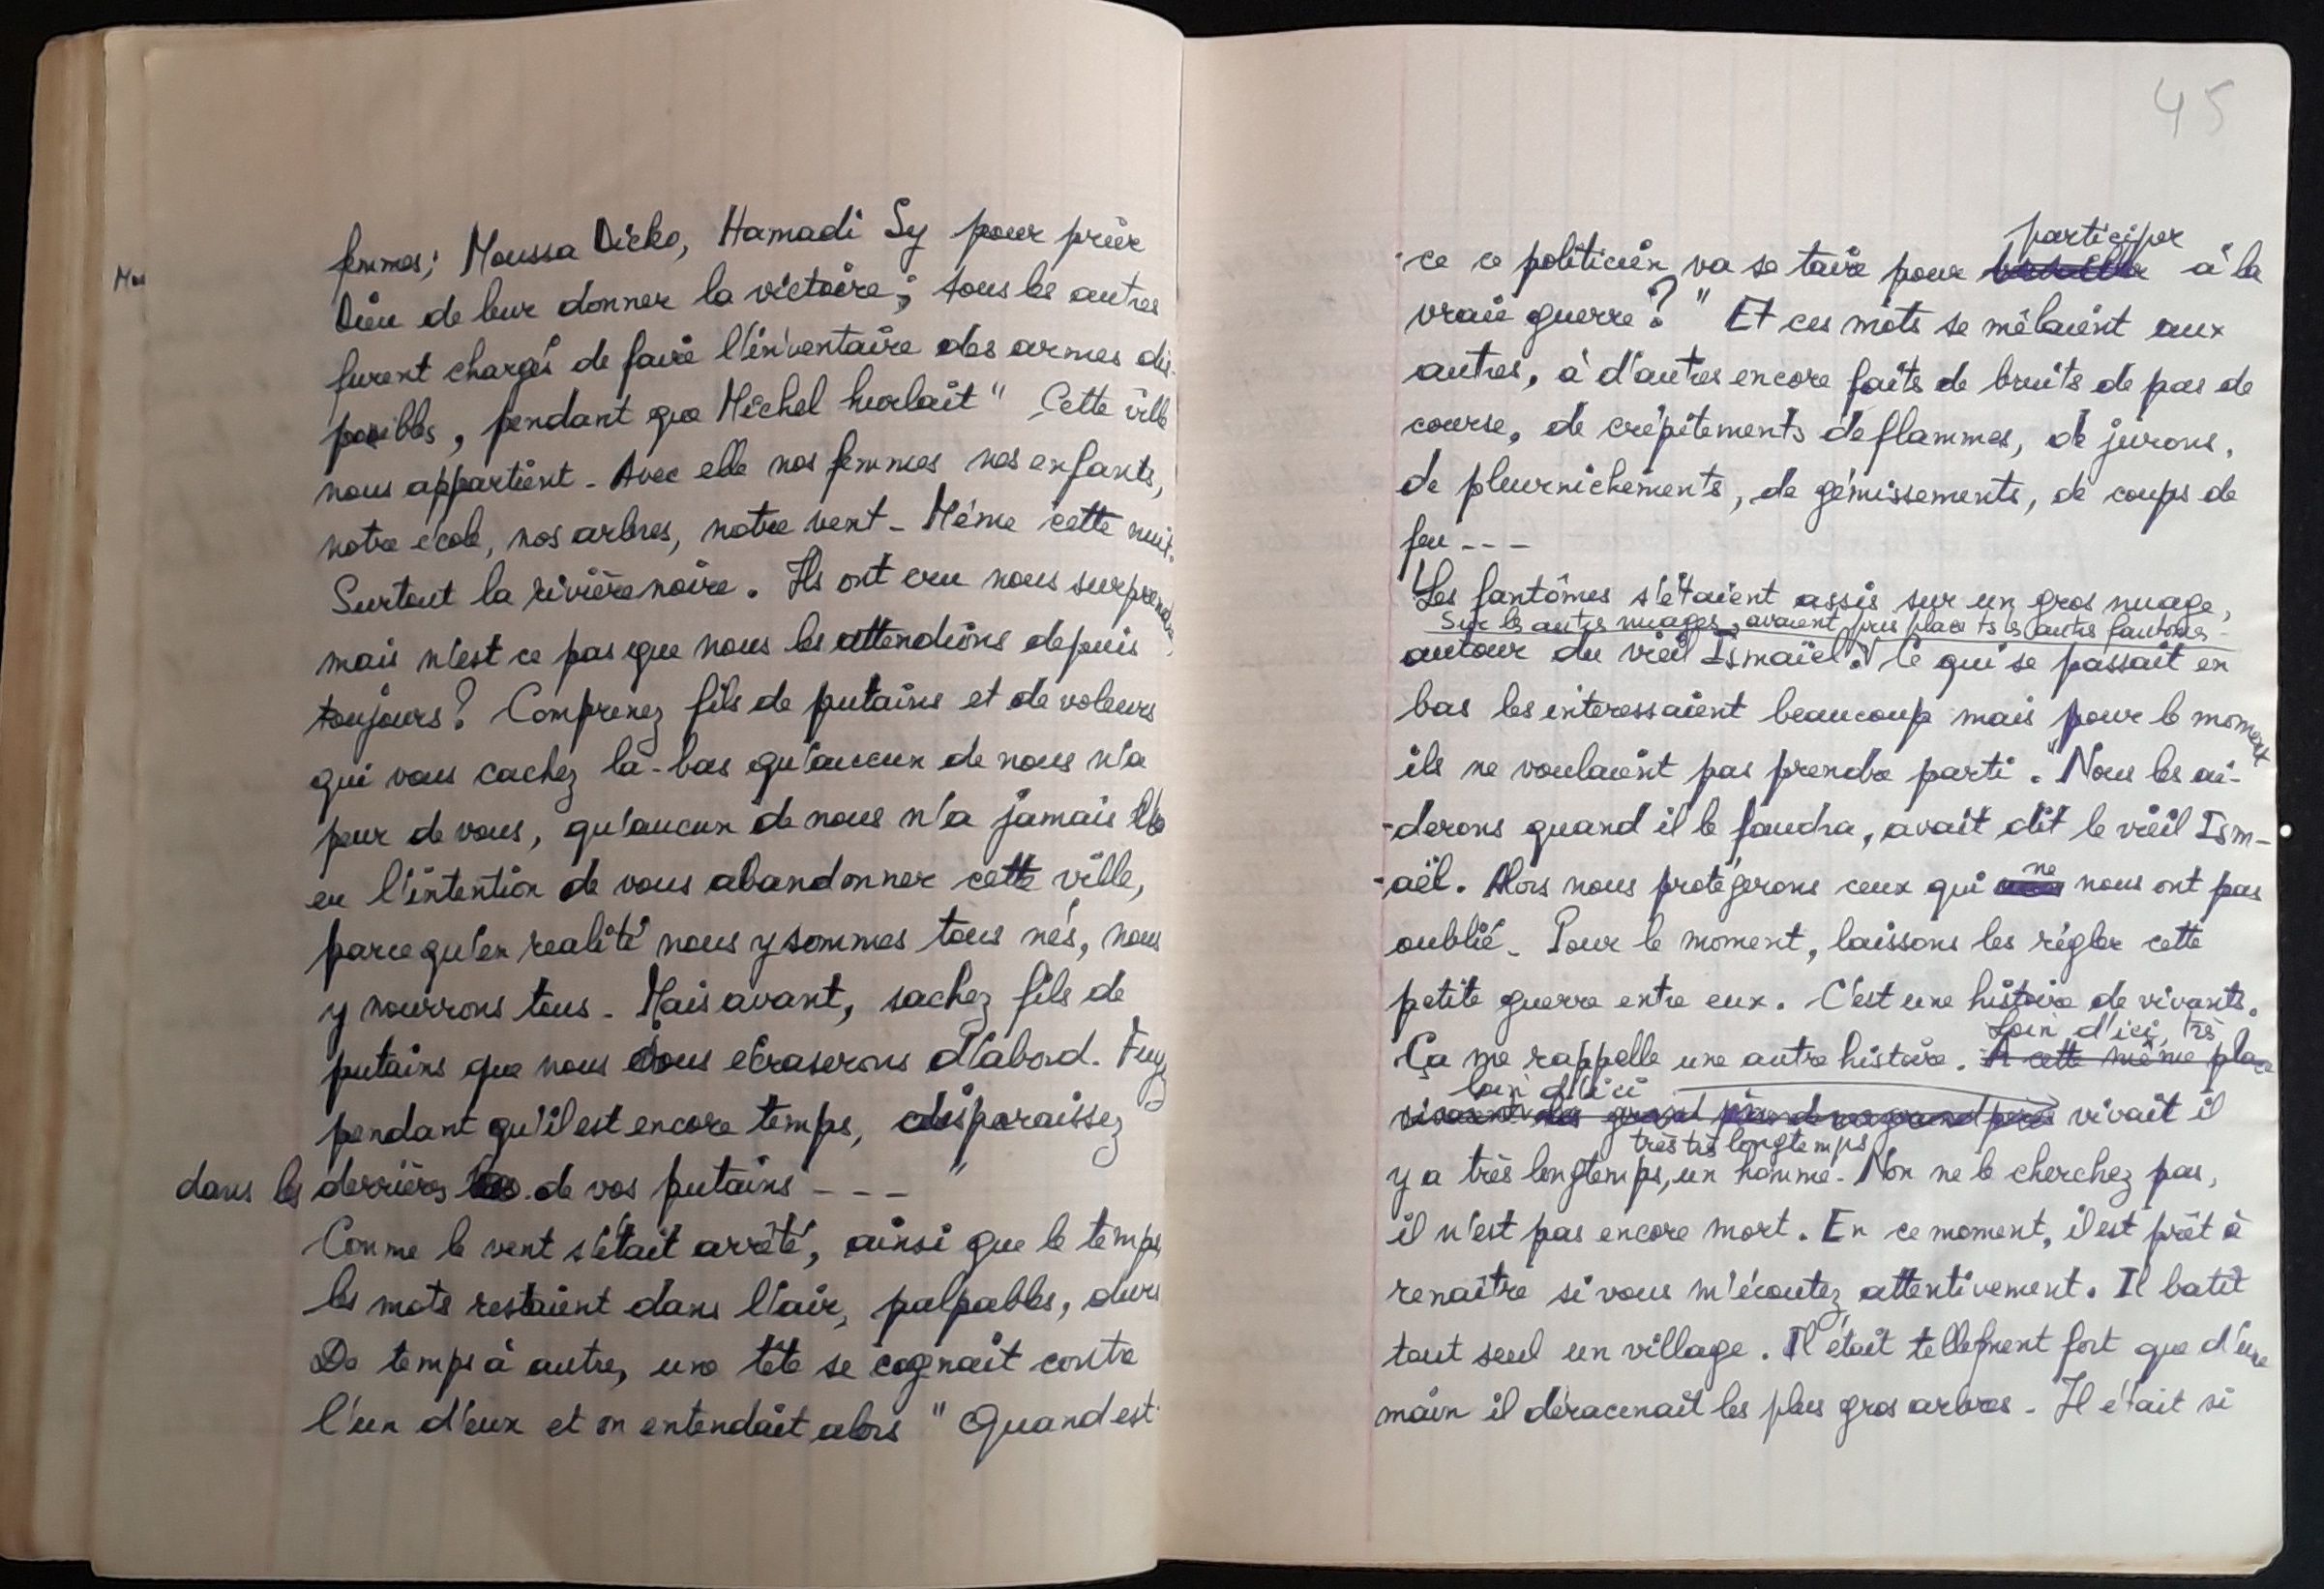 femmes; Moussa Dicko, Hamadi Sy pour prier
Dieu de leur donner la victoire; tous les autres
furent chargés de faire l'inventaire des armes dis-
ponibles, pendant que Michel hurlait " Cette ville
nous appartient. Avec elle nos femmes nos enfants,
notre école, nos arbres, notre vent. Même cette nuit.
Surtout la rivière noire. Ils ont cru nous surprendre,
mais n'est ce pas que nous les attendions depuis
toujours? Comprenez fils de putains et de voleurs
qui vous cachez là-bas qu'aucun de nous n'a
peur de vous, qu'aucun de nous n'a jamais
eu l'intention de vous abandonner cette ville,
parce qu'en realité nous y sommes tous nés, nous
y mourrons tous. Mais avant, sachez fils de
putains que nous vous écraserons d'abord. Fuyez
pendant qu'il est encore temps, disparaissez
dans les derrières de vos putains - - - "
Comme le vent s'était arrêté, ainsi que le temps,
les mots restaient dans l'air, palpables, durs
De temps à autre, une tête se cognait contre
l'un d'eux et on entendait alors " Quand est
Mou
45
participer
ce ce politicien va se taire pour à la
vraie guerre? " Et ces mots se mêlaient aux
autres, à d'autres encore faits de bruits de pas de
course, de crépitements de flammes, de jurons,
de pleurnichements, de gémissements, de coups de
feu - - -
Les fantômes s'étaient assis sur un gros nuage,
Sur les autres nuages, avaient pris place ts les autres fantômes.
autour du vieil Ismaïel. Ce qui se passait en
bas les interessaient beaucoup mais pour le moment
ils ne voulaient pas prendre parti. "Nous les ai-
-derons quand il le faudra, avait dit le vieil Ism-
ne
-aël. Alors nous protégerons ceux qui nous ont pas
oublié. Pour le moment, laissons les régler cette
petite guerre entre eux. C'est une histoire de vivants.
Loin d'ici, très
Ça me rappelle une autre histoire. A cette même place
loin d'ici
vivaient les grand pères de vos grand pères vivait il
très très longtemps
y a très longtemps, un homme. Non ne le cherchez pas,
il n'est pas encore mort. En ce moment, il est prêt à
renaître si vous m'écoutez attentivement. Il batit
tout seul un village. Il était tellement fort que d'une
main il déracinait les plus gros arbres. Il était si